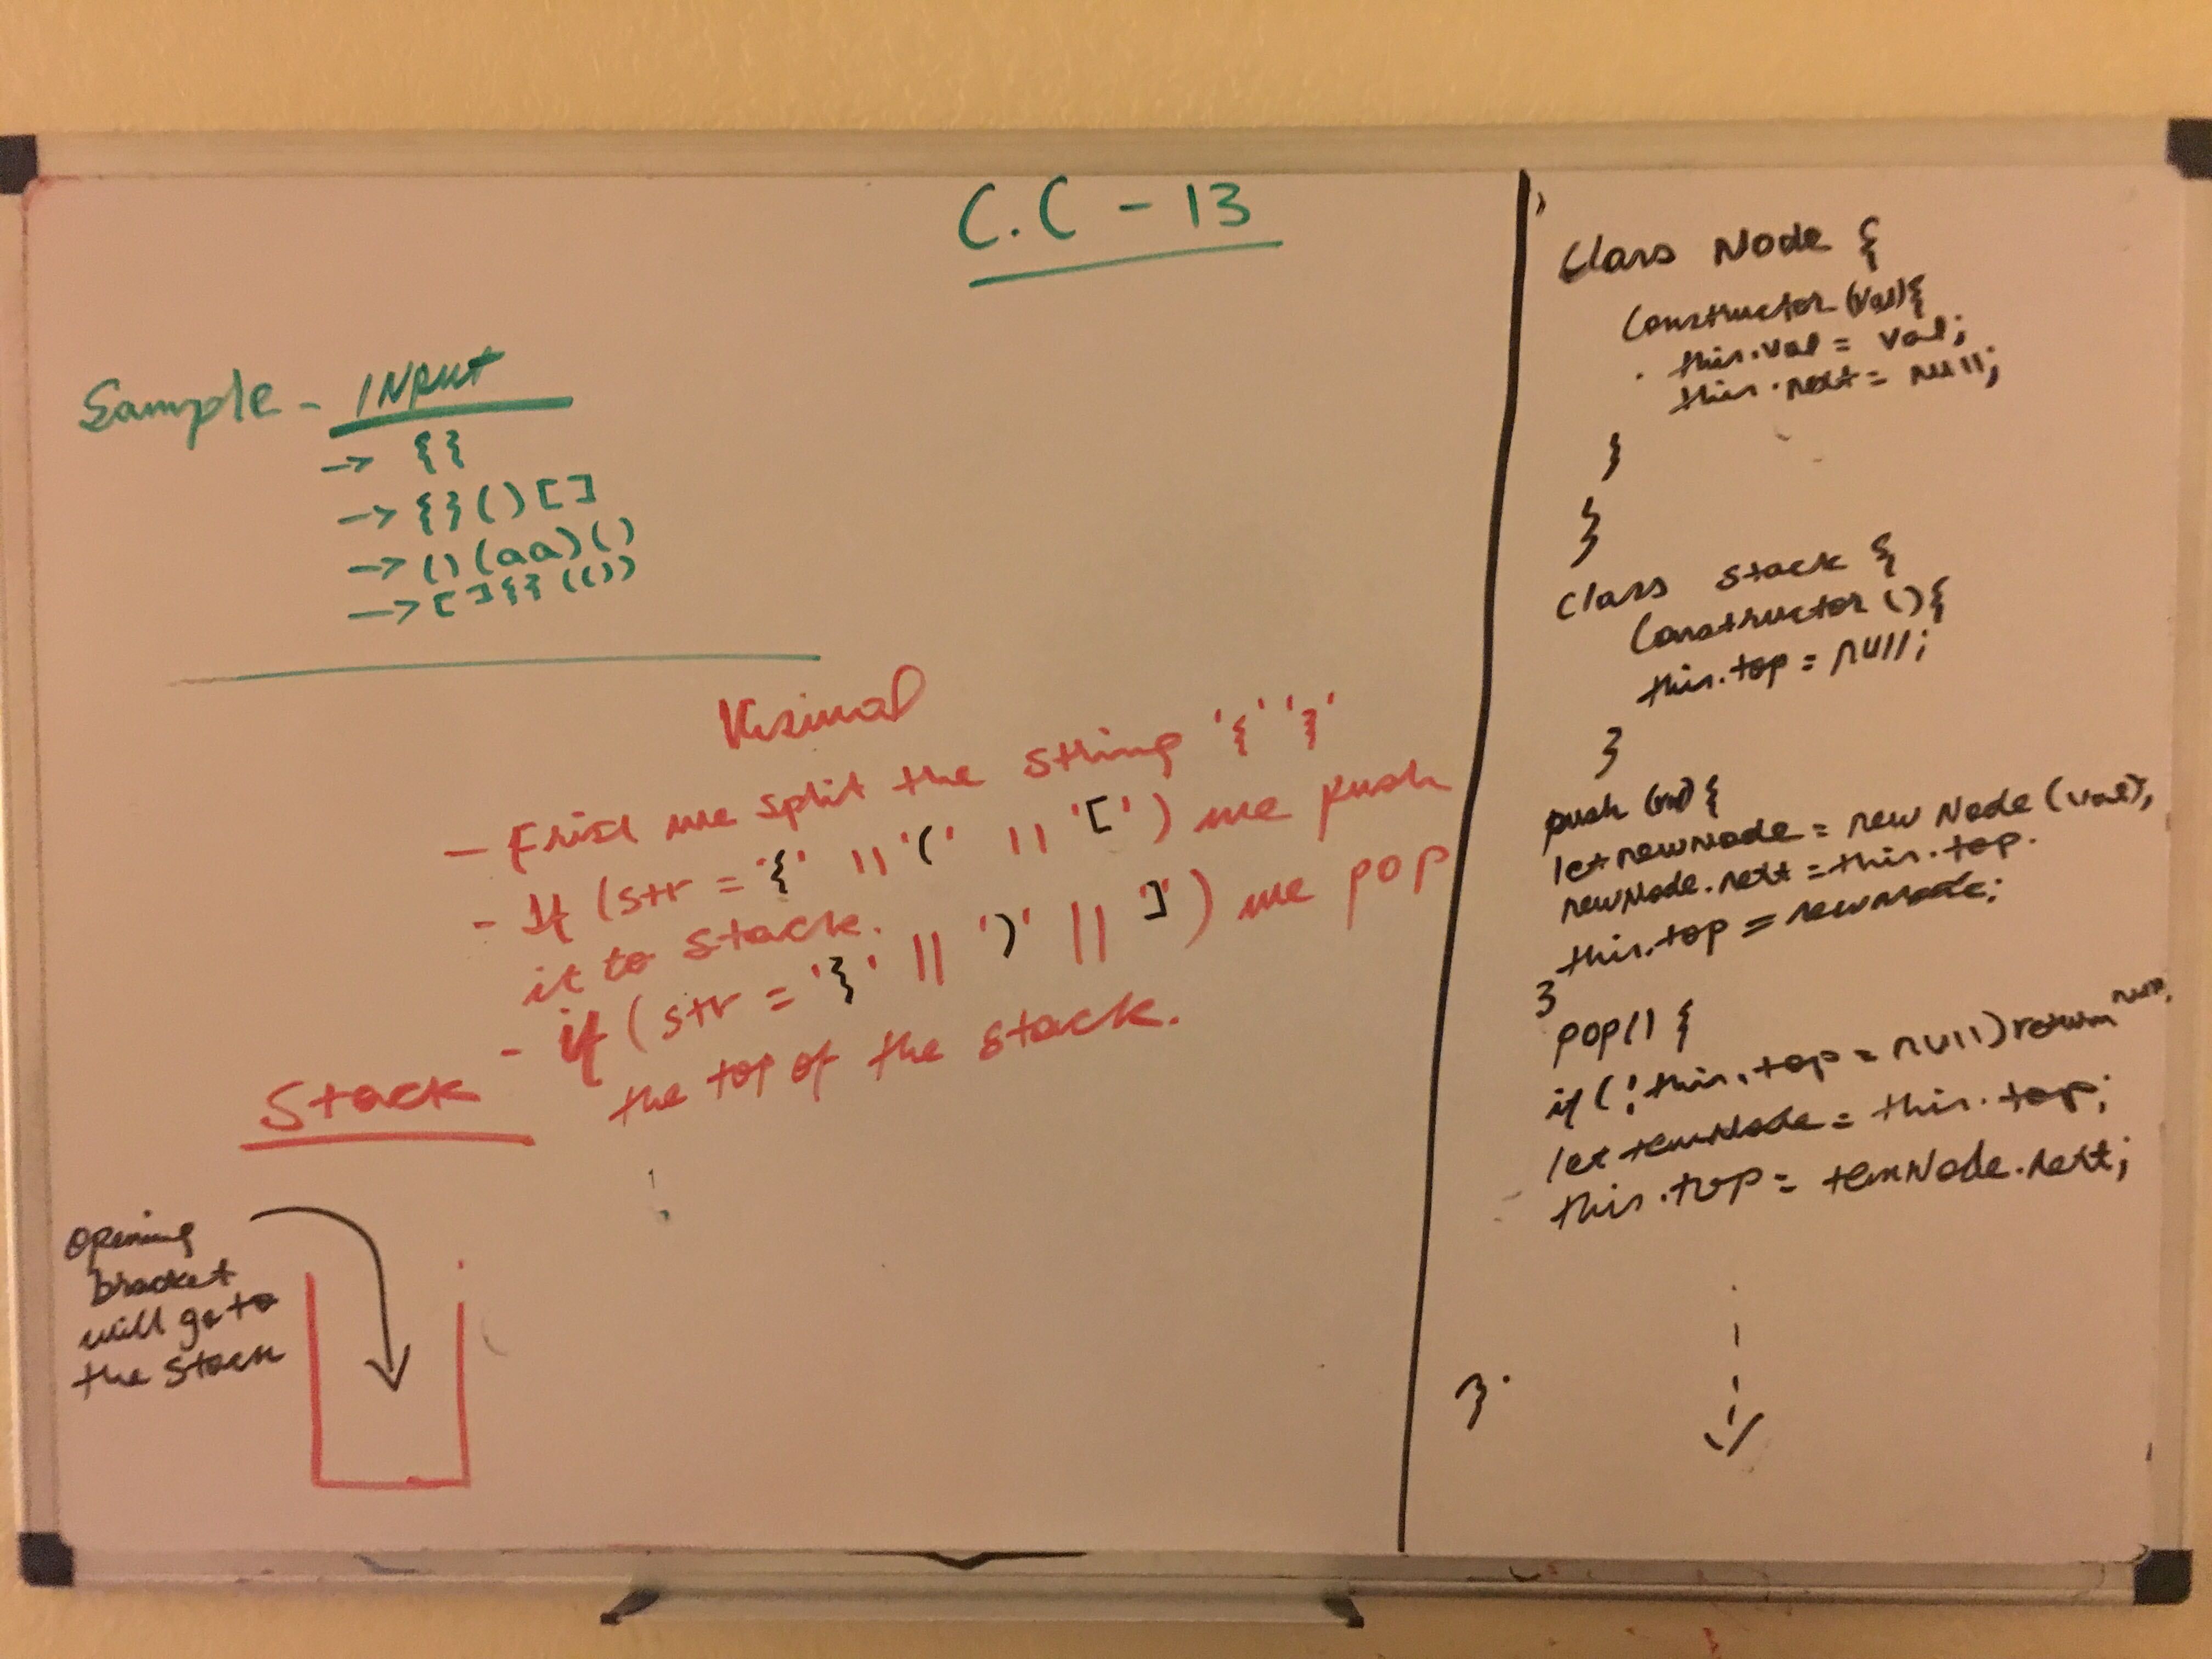 C.C - 13
Sample - INPUT
-> {}
-> {}()[]
-> ()(aa)()
-> []{}(())
Visual
- First we split the string '{' '}'
- If (str = '{' || '(' || '[') we push
it to stack.
- if (str = '}' || ')' || ']') we pop
the top of the stack.
Stack
opening
bracket
will go to
the stack
Class Node {
Constructor (val){
this.val = val;
this.next = null;
}
}
Class Stack {
Constructor (){
this.top = null;
}
push (val) {
let newNode = new Node (val);
newNode.next = this.top.
this.top = newNode;
}
pop() {
if (!this.top = null) return null.
let temNode = this.top;
this.top = temNode.next;
}